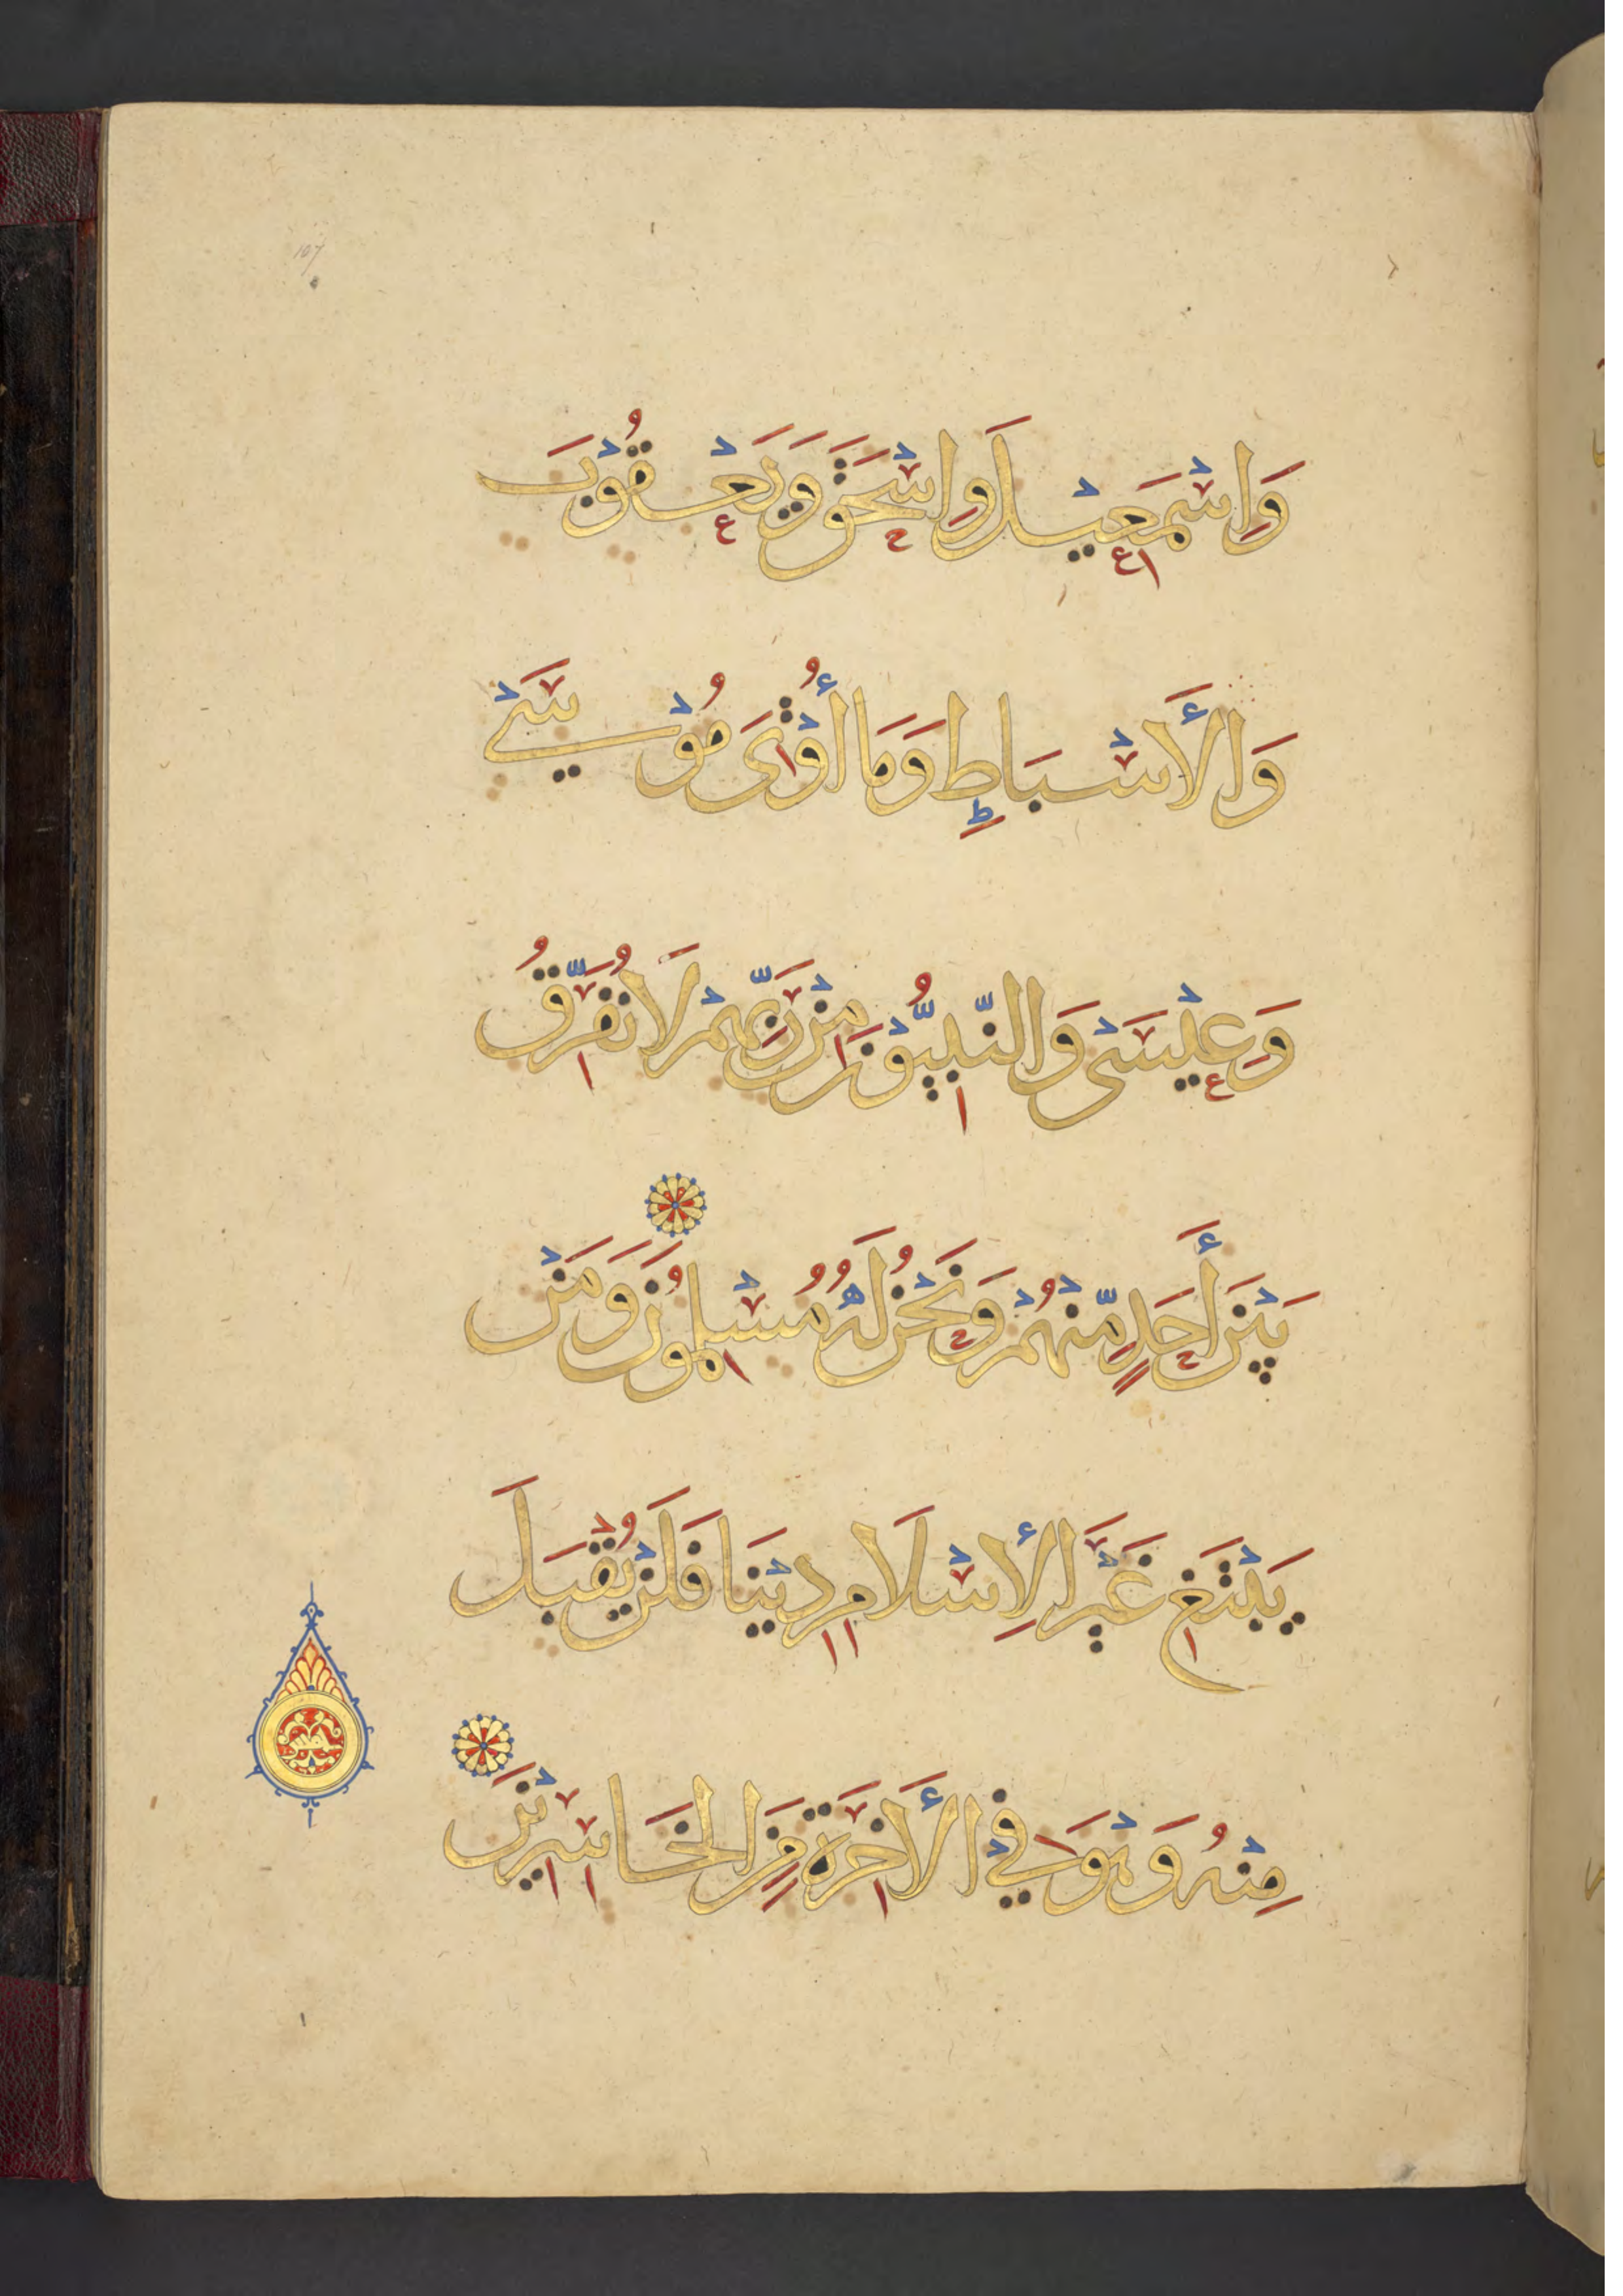 وَإِسْمَعِيلَ وَإِسْحَقَ وَيَعْقُوبَ
وَالْأَسْبَاطِ وَمَا أُوْتِىَ مُوْسَىْ
وَعِيْسَىْ وَالنَّبِيُّوْنَ مِنْ رَبِّهِمْ لَا نُفَرِّقُ
بَيْنَ أَحَدٍ مِّنْهُمْ وَنَحْنُ لَهُ مُسْلِمُونَ وَمَنْ
يَبْتَغِ غَيْرَ الْإِسْلَامِ دِيْنَا فَلَنْ يُقْبَلَ
مِنْهُ وَهُوَ فِي الْأَخِرَةِ مِنَ الْخَاسِرِيْنَ